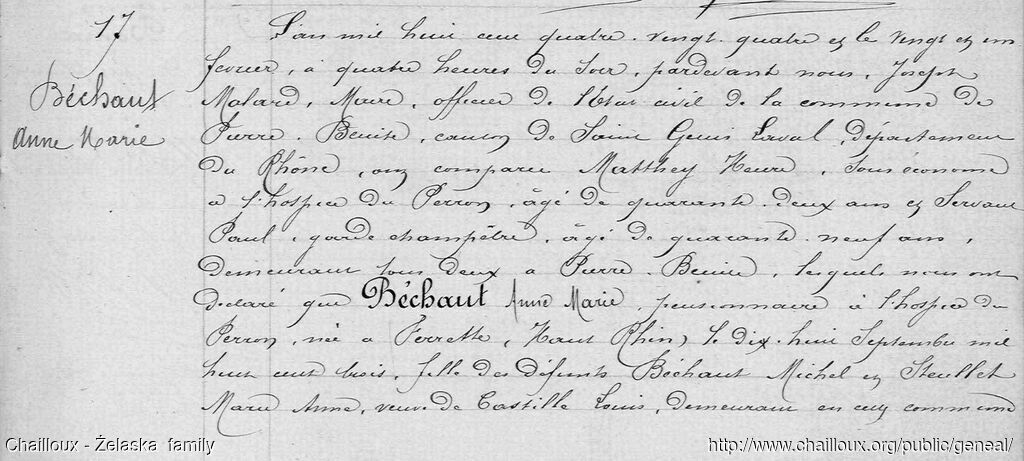 17
Béchaut
Anne Marie
L'an mil huit cent quatre-vingt-quatre et le vingt et un
fevrier, à quatre heures du soir, pardevant nous, Joseph
Malard, Maire, officier de l'état civil de la commune de
Pierre-Bénite, canton de Saint Genis Laval, département
du Rhône, ont comparu Matthey Henri, sous économe
à l'hospice du Perron, âgé de quarante-deux ans et Servant
Paul, garde champêtre, âgé de quarante-neuf ans,
demeurant tous deux à Pierre-Bénite, lesquels nous ont
déclaré que Béchaut Anne Marie, pensionnaire à l'hospice du
Perron, née à Ferrette, (Haut Rhin) le dix-huit Septembre mil
huit cent trois, fille des défunts Béchaut Michel et Steullet
Marie Anne, veuve de Castille Louis, demeurant en cette commune
Chailloux - Żelaska family
http://www.chailloux.org/public/geneal/